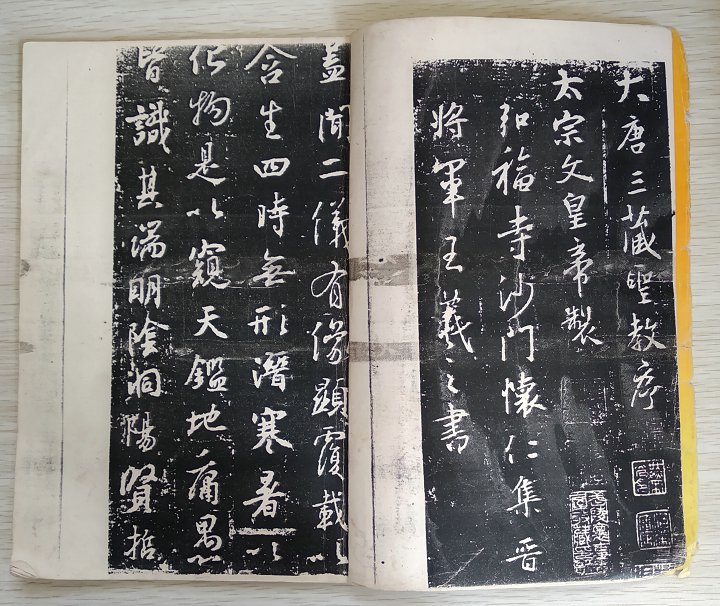 大唐三藏聖教序
太宗文皇帝製
弘福寺沙門懷仁集晉
將軍王羲之書
蓋聞二儀有像顯覆載以
含生四時無形潛寒暑以
化物是以窺天鑑地庸愚
皆識其端明陰洞陽賢哲